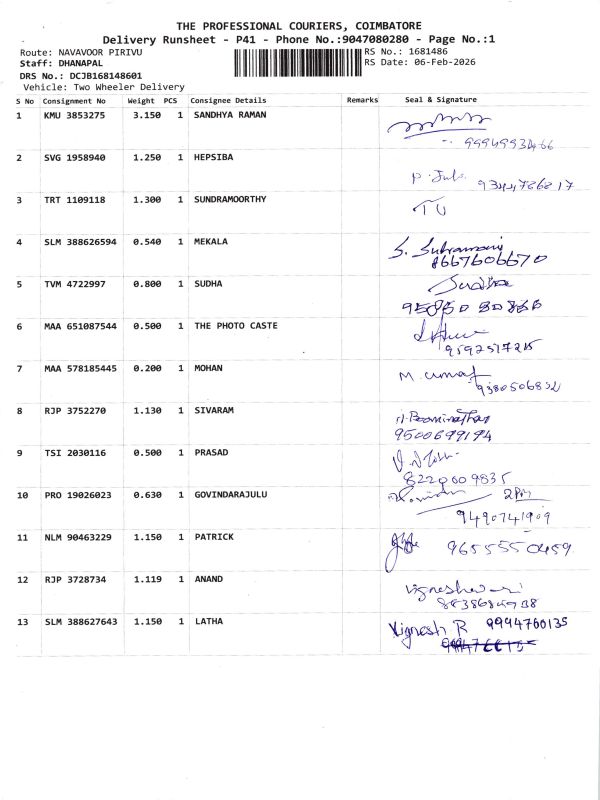 THE PROFESSIONAL COURIERS, COIMBATORE
Delivery Runsheet - P41 - Phone No.:9047080280 - Page No.:1
Route: NAVAVOOR PIRIVU RS No.: 1681486
Staff: DHANAPAL RS Date: 06-Feb-2026
DRS No.: DCJB168148601
Vehicle: Two Wheeler Delivery
S No Consignment No Weight PCS Consignee Details Remarks Seal & Signature
1 KMU 3853275 3.150 1 SANDHYA RAMAN
2 SVG 1958940 1.250 1 HEPSIBA
9344786817
3 TRT 1109118 1.300 1 SUNDRAMOORTHY
4 SLM 388626594 0.540 1 MEKALA
8667606670
5 TVM 4722997 0.800 1 SUDHA
6 MAA 651087544 0.500 1 THE PHOTO CASTE
9592517215
7 MAA 578185445 0.200 1 MOHAN
9380506832
8 RJP 3752270 1.130 1 SIVARAM
9500699194
9 TSI 2030116 0.500 1 PRASAD
8220009835
10 PRO 19026023 0.630 1 GOVINDARAJULU
9490741909
11 NLM 90463229 1.150 1 PATRICK
9655550459
12 RJP 3728734 1.119 1 ANAND
13 SLM 388627643 1.150 1 LATHA Vignesh R 9994760135